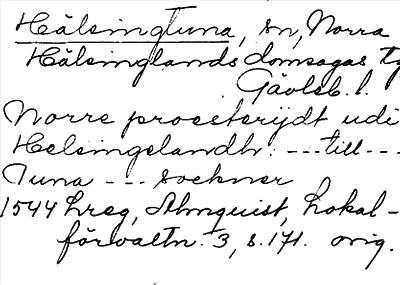 Hälsingtuna, sn, Norra
Hälsinglands domsagas t
Gävleb. l.
Norre proesterijdt udi
Helsingelandh: --- till ---
Tuna --- sockner
1544 Lreg, Almquist, Lokal-
förvaltn. 3, s. 171. orig.